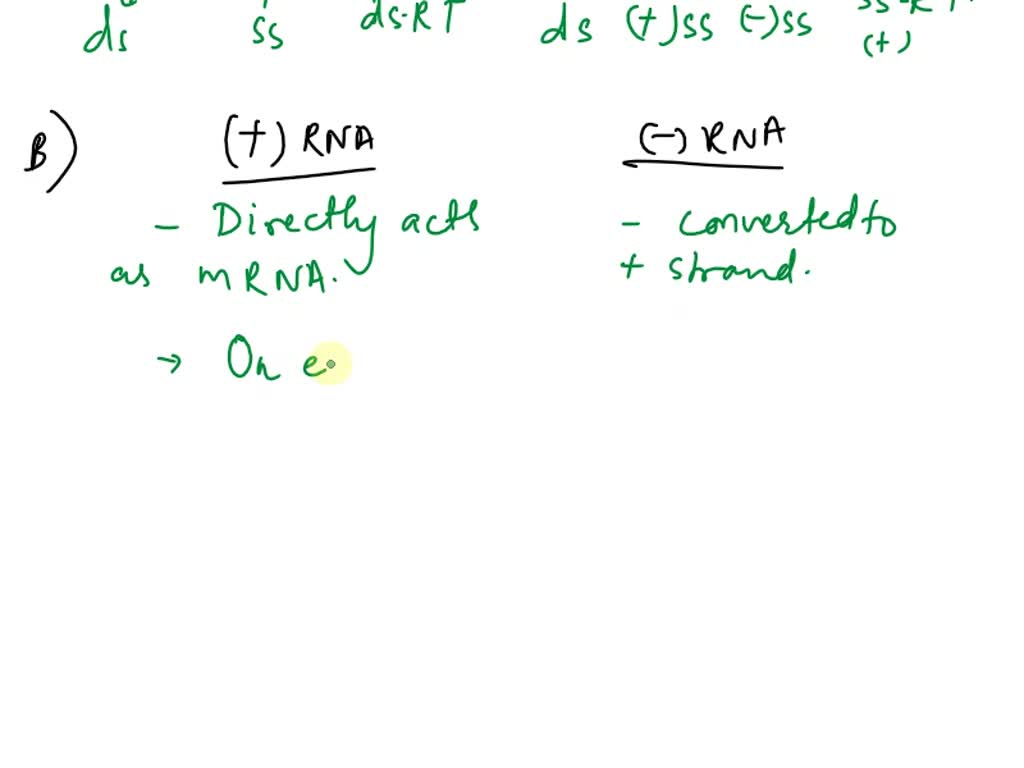 ds ss ds-RT ds (+)ss (-)ss ss-RT
(+)
B) (+) RNA (-) RNA
- Directly acts - converted to
as mRNA. + strand.
→ On e